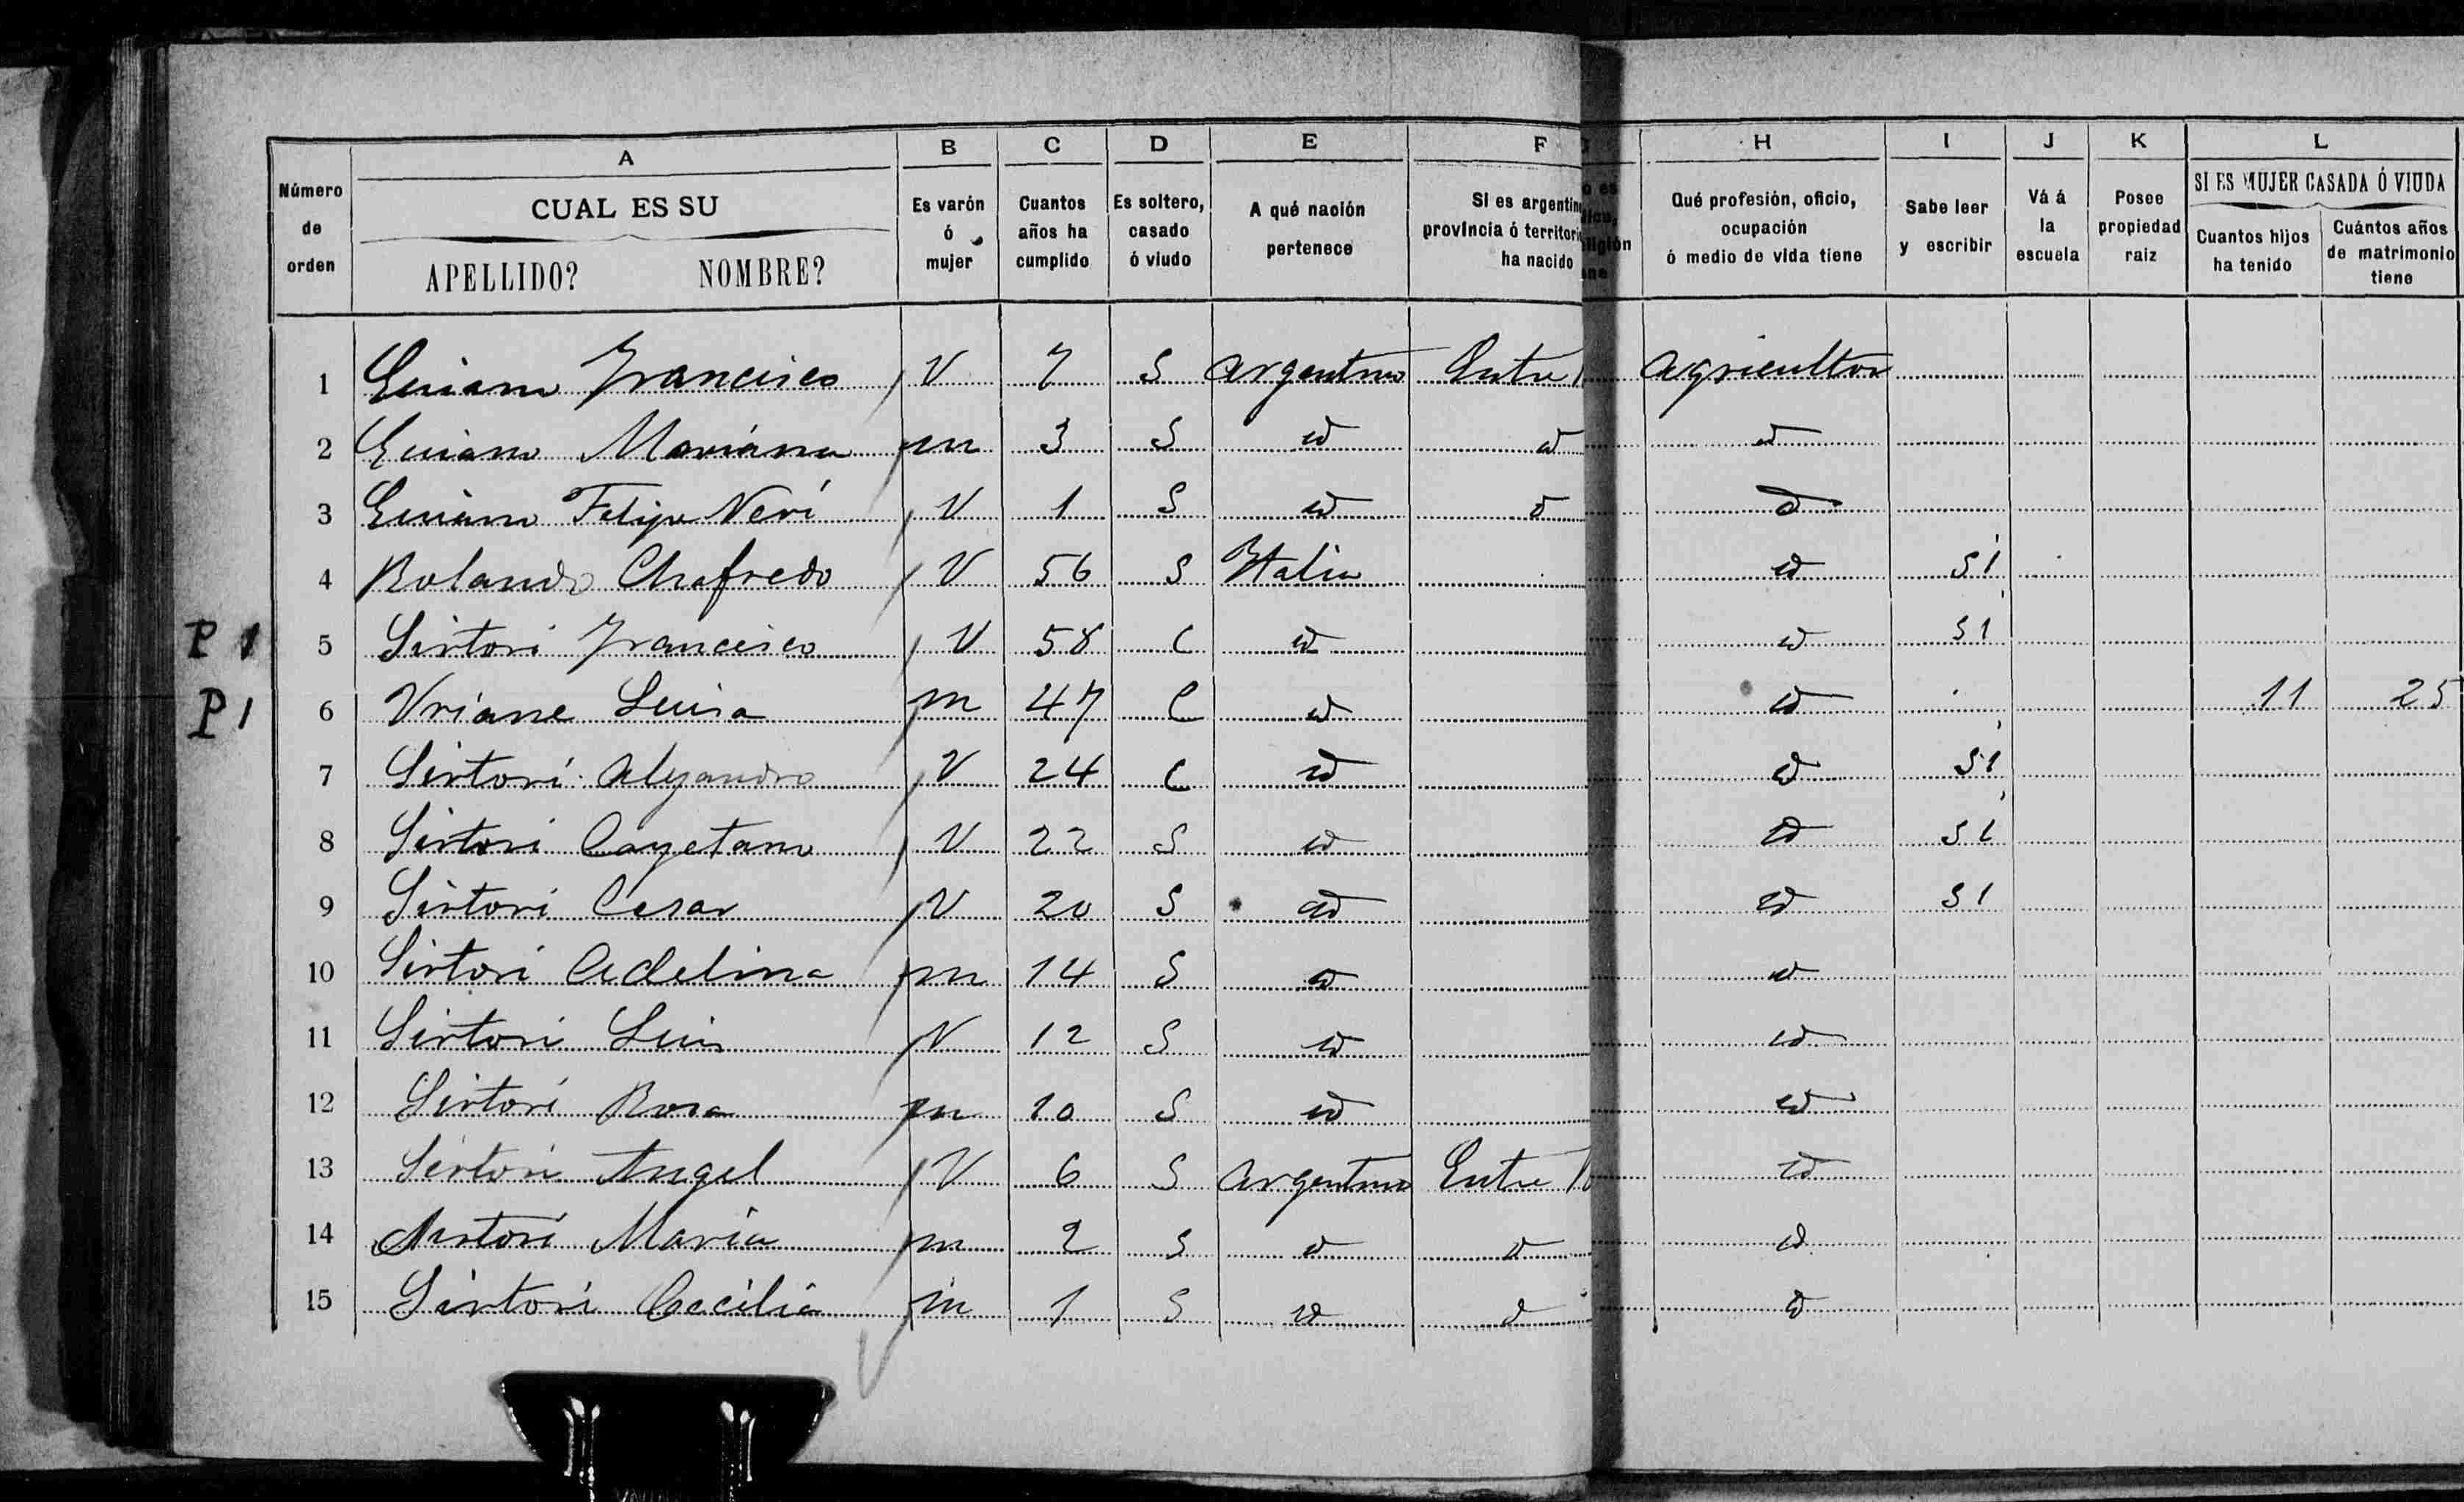 A B C D E F H I J K L
Número de orden
CUAL ES SU
APELLIDO? NOMBRE?
Es varón ó mujer
Cuantos años ha cumplido
Es soltero, casado ó viudo
A qué nación pertenece
Si es argentino provincia ó territorio ha nacido
Qué profesión, oficio, ocupación ó medio de vida tiene
Sabe leer y escribir
Vá á la escuela
Posee propiedad raiz
SI ES MUJER CASADA Ó VIUDA
Cuantos hijos ha tenido
Cuántos años de matrimonio tiene
1 Francisco V 7 S Argentino Entre Agricultor
2 Mariana m 3 S id id id
3 Felipe Neri V 1 S id id id
4 Rolando Chafredo V 56 S Italia id si
P 1 5 Sirtori Francisco V 58 C id id si
P 1 6 Vriane Luisa m 47 C id id 11 25
7 Sirtori Alejandro V 24 C id id si
8 Sirtori Cayetano V 22 S id id si
9 Sirtori Cesar V 20 S id id si
10 Sirtori Adelina m 14 S id id
11 Sirtori Luis V 12 S id id
12 Sirtori Rosa m 10 S id id
13 Sirtori Angel V 6 S Argentino Entre id
14 Sirtori Maria m 2 S id id id
15 Sirtori Cecilia m 1 S id id id